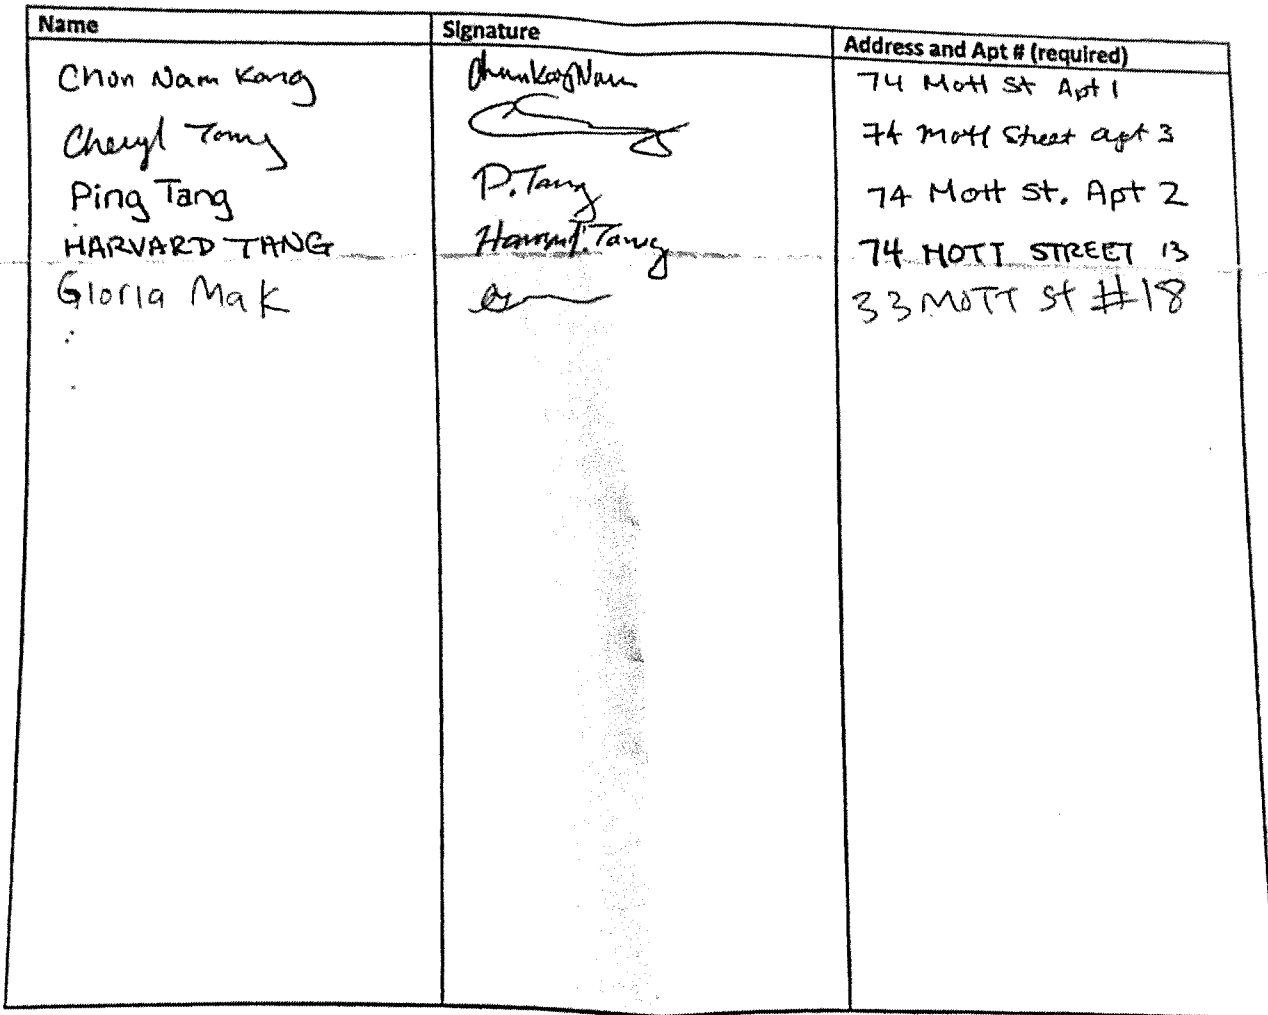 Name Signature Address and Apt # (required)
Chun Nam Kang ChunKayNam 74 Mott St Apt 1
Cheryl Tang 74 Mott Street apt 3
Ping Tang P. Tang 74 Mott St. Apt 2
HARVARD TANG Harvard. Tang 74 MOTT STREET 13
Gloria Mak 33 MOTT St #18